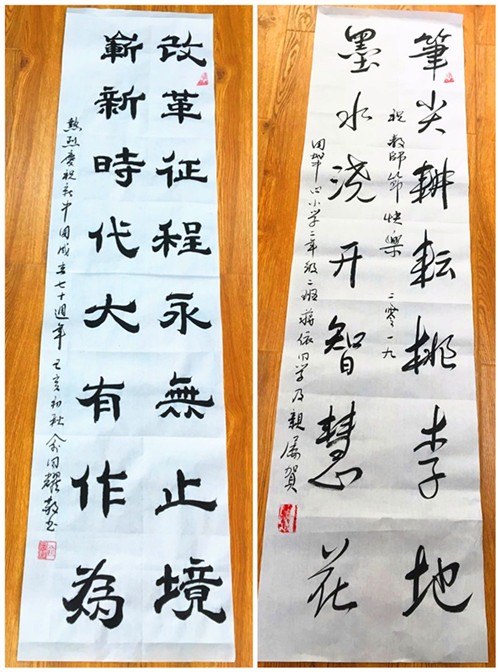 改革征程永無止境
嶄新時代大有作為
熱烈慶祝新中国成立七十週年 己亥初秋 俞国耀敬书
筆尖耕耘桃李地
墨水浇开智慧花
祝教師節快樂 二零一九
小学二年级二班蒋依同学及親属賀